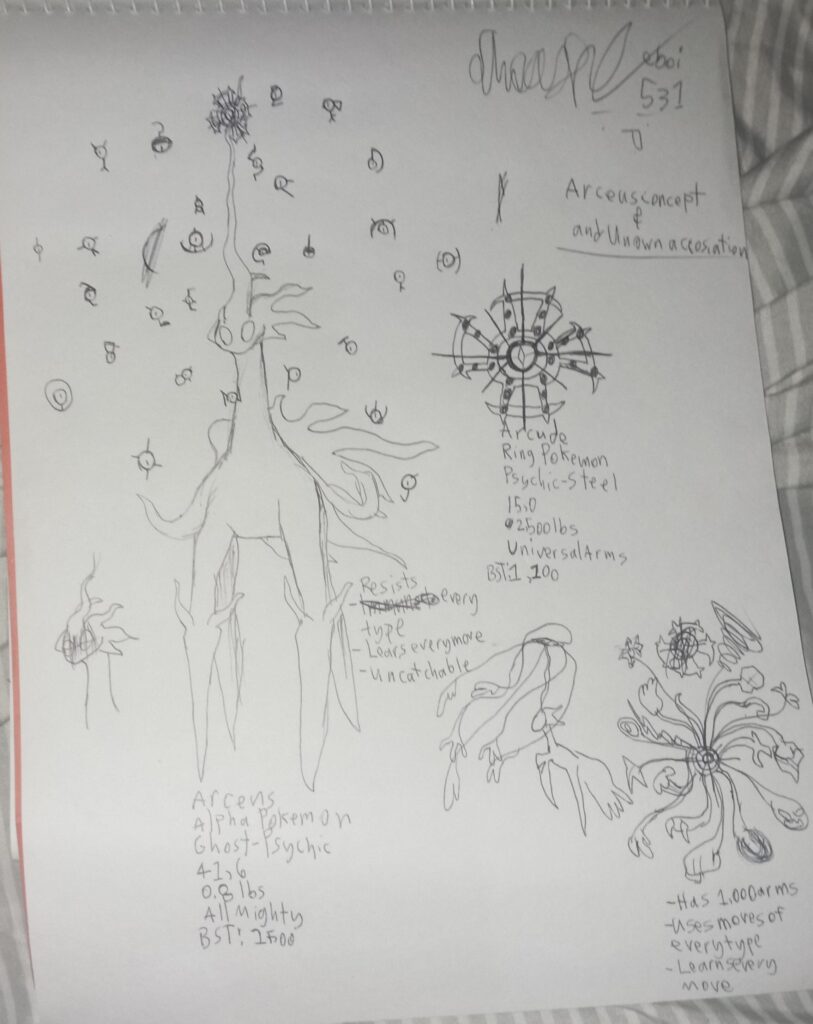 eboi
531
Arceus concept
&
and Unown accosiation
Arcude
Ring Pokemon
Psychic-Steel
15,0
2500lbs
Universal Arms
BST: 1,100
Resists
every
type
-Lears every move
-uncatchable
Arceus
Alpha Pokemon
Ghost-Psychic
41,6
0.8 lbs
All Mighty
BST: 1500
-Has 1,000 arms
-uses moves of
every type
-Learns every
move